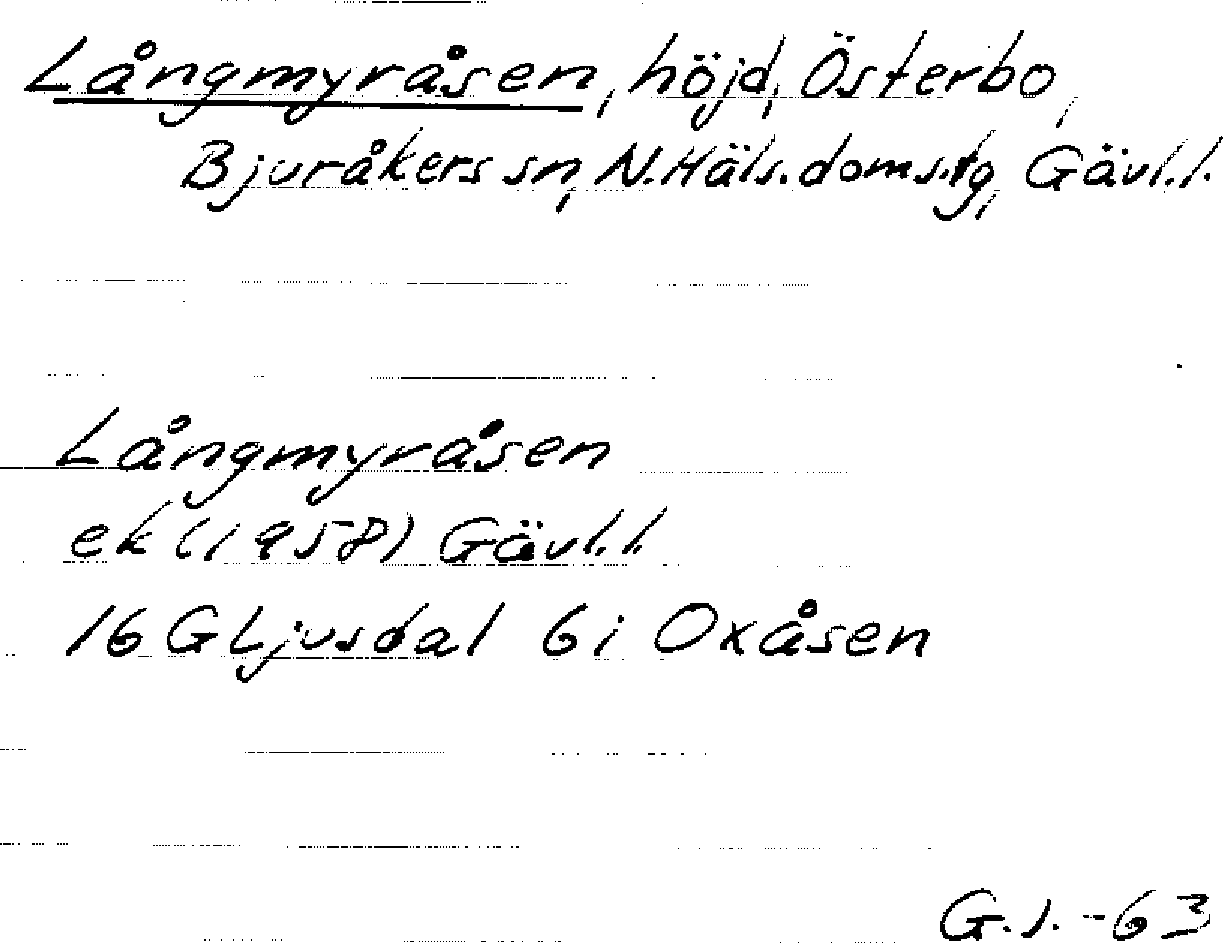 Långmyråsen, höjd, Österbo,
Bjuråkers sn, N. Häls. doms.tg, Gävl.l.
Långmyråsen
ek (1958) Gävl.l.
16 G Ljusdal 6i Oxåsen
G.J. -63